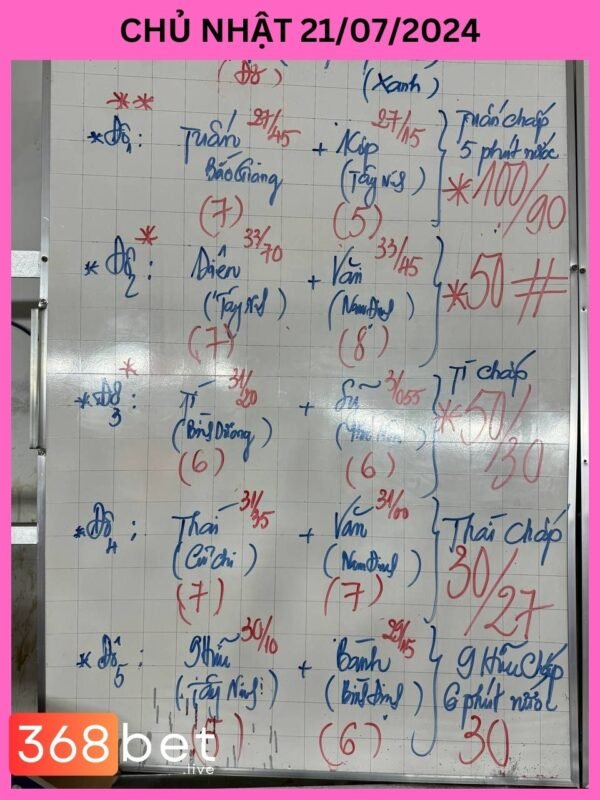 CHỦ NHẬT 21/07/2024
(Đỏ) (Xanh)
**
* Độ 1: Tuấn 27/45 + Kiệp 27/15 } Tuấn chấp
Bảo Giang (Tây Ninh) 5 phút nước
(7) (5) *100/90
*
* Độ 2: Diên 33/70 + Văn 33/45 } *50#
(Tây Ninh) (Nam Định)
(7) (8)
*
* Độ 3: Tí 31/20 + Sĩ 3/055 } Tí chấp
(Bình Dương) *50/30
(6) (6)
* Độ 4: Thái 31/35 + Văn 31/00 } Thái chấp
(Củ Chi) (Nam Định) 30/27
(7) (7)
* Độ 5: 9 Hữu 30/10 + Bành 29/15 } 9 Hữu chấp
(Tây Ninh) (Bình Định) 6 phút nước
(6) 30
368bet
.live